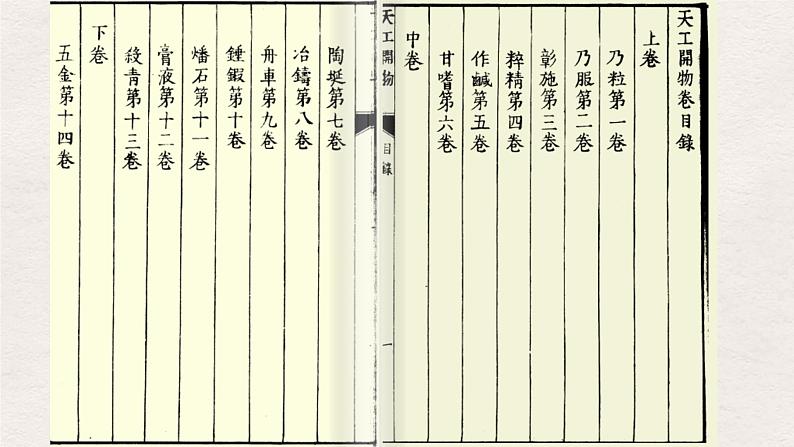 天工開物卷目錄
上卷
乃粒第一卷
乃服第二卷
彰施第三卷
粹精第四卷
作鹹第五卷
甘嗜第六卷
中卷
天工開物
目錄
一
陶埏第七卷
冶鑄第八卷
舟車第九卷
錘鍜第十卷
燔石第十一卷
膏液第十二卷
殺青第十三卷
下卷
五金第十四卷